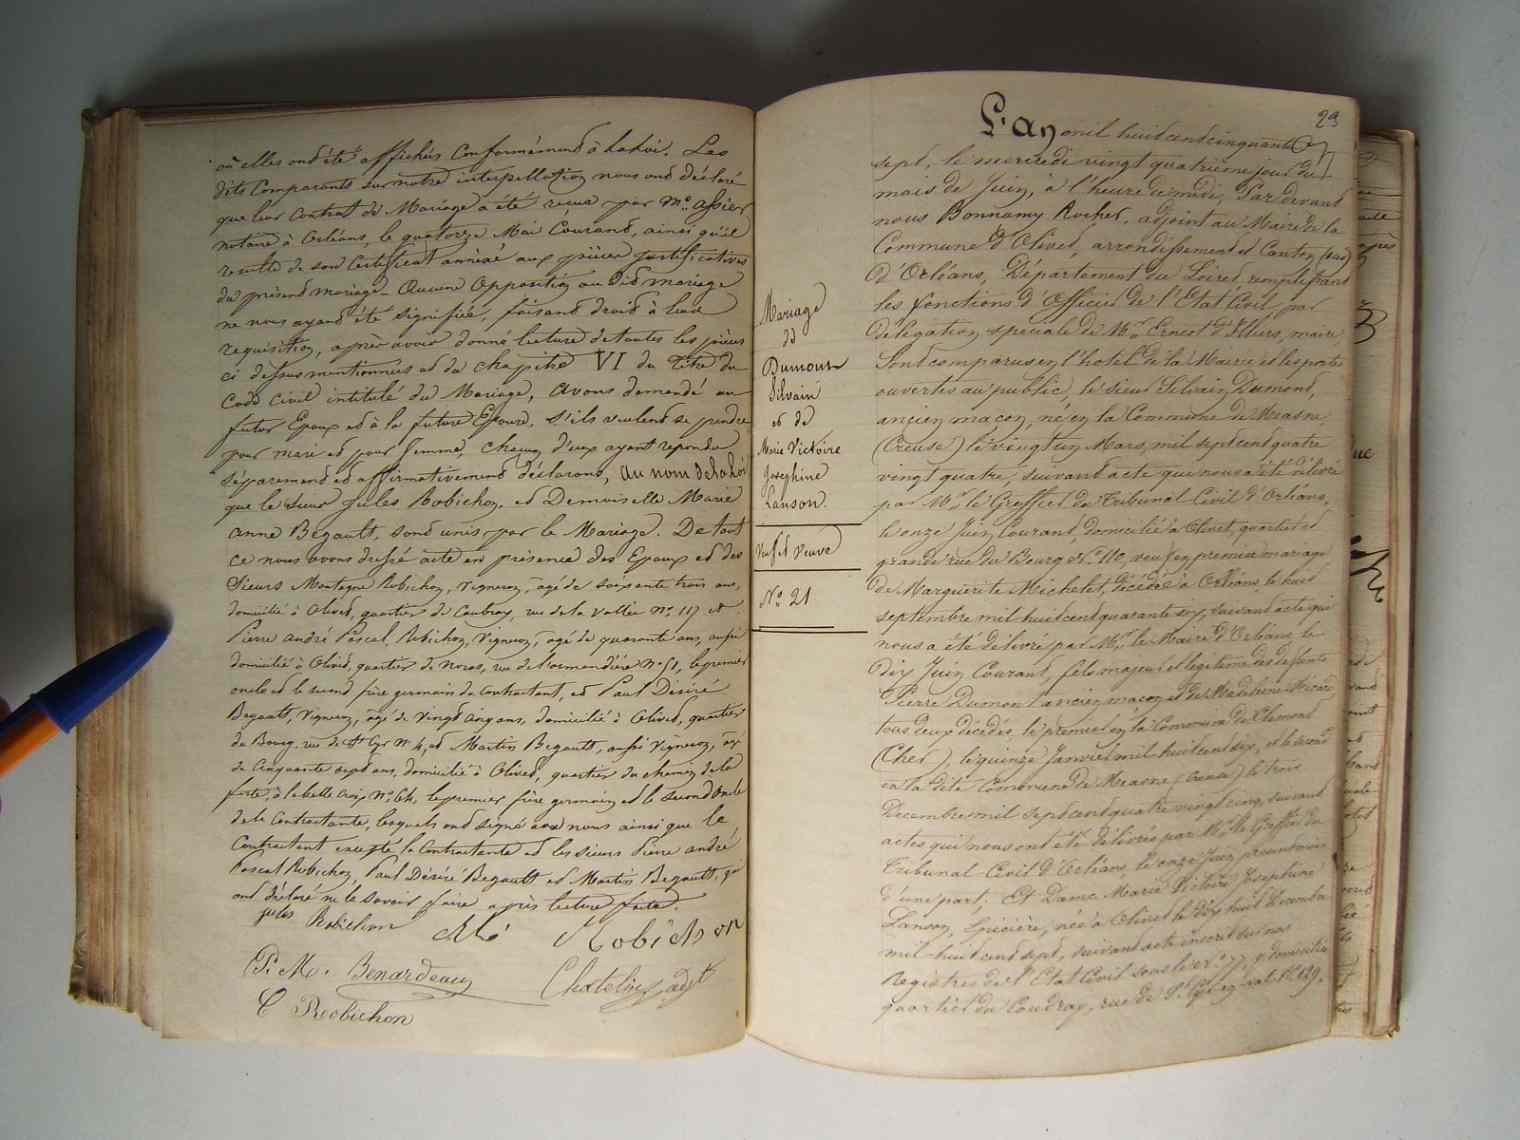 où elles ont été affichées Conformément à la Loi. Les
dits Comparants sur notre interpellation nous ont déclaré
que leur Contrat de Mariage a été reçu par Me. assier
notaire à Orléans, le quatorze Mai Courant, ainsi qu'il
resulte de son Certificat annexé aux pièces justificatives
du présent mariage. Aucune Opposition au dit mariage
ne nous ayant été signifiée, faisant droit à leur
requisition, après avoir donné lecture de toutes les pièces
ci dessus mentionnées et du chapitre VI du Titre du
Code Civil intitulé du Mariage, avons demandé au
futur Epoux et à la future Epouse, s'ils veulent se prendre
pour mari et pour femme, chacun d'eux ayant repondu
séparement et affirmativement déclarons, au nom de la Loi
que le sieur Jules Robichon, et Demoiselle Marie
anne Begault, sont unis par le Mariage. De tout
ce nous avons dressé acte en présence des Epoux et des
Sieurs Montagne Robichon, Vigneron, âgé de soixante trois ans,
domicilié à Olivet, quartier du Coudray, rue de la Vallée No. 117 et
Pierre andré Pascal Robichon, Vigneron, âgé de quarante ans, aussi
domicilié à Olivet, quartier de rue de No. 51, le premier
oncle et le second frère germain du Contractant, et Paul Désiré
Begault, Vigneron, âgé de vingt cinq ans, domicilié à Olivet, quartier
du Bourg, rue de St Cyr No 4, et Martin Begault, aussi Vigneron, âgé
de Cinquante sept ans, domicilié à Olivet, quartier du chemin de la
ferté, à la belle Croix No. 64, le premier frère germain et le second Oncle
de la Contractante, lesquels ont signé avec nous ainsi que le
Contractant excepté la Contractante et les sieurs Pierre andré
Pascal Robichon, Paul Désiré Begault et Martin Begault, qui
ont déclaré ne le savoir faire après lecture faite.
jules Robichon Robichon
P. M. Benardeau Chatelin adjt
C Robichon
23
L'an mil huit cent cinquante
sept, le mercredi vingt quatrième jour du
mois de Juin, à l'heure de midi, Pardevant
nous Bonnamy Rocher, adjoint au Maire de la
Commune d'Olivet, arrondissement et Canton (sud)
d'Orléans, Département du Loiret, remplissant
les fonctions d'Officier de l'Etat Civil, par
délégation spéciale de Mr. Ernest maire
Sont comparus en l'hôtel de la Mairie et les portes
ouvertes au public, le sieur Silvain Dumont,
ancien maçon, né en la Commune de Mèasne,
(Creuse) le vingt un Mars, mil sept cent quatre
vingt quatre, suivant acte qui nous a été délivré
par Mr. le Greffier du Tribunal Civil d'Orléans,
le onze Juin Courant, domicilié à Olivet, quartier et
grande rue du Bourg No. 110, veuf en premier mariage
de Marguerite Michelet, décédée à Orléans, le huit
septembre mil huit cent quarante six, suivant acte qui
nous a été délivré par Mr. le Maire d'Orléans, le
dix Juin Courant, fils majeur et légitime des défunts
Pierre Dumont ancien maçon et de Madeleine
tous deux décédés, le premier en la Commune de Clemont
(Cher), le quinze Janvier mil huit cent dix, et la seconde
en la dite Commune de Measne (Creuse) le trois
Decembre mil sept cent quatre vingt cinq, suivant
actes qui nous ont été délivrés par Mr. le Greffier du
Tribunal Civil d'Orléans, le onze Juin présent mois
d'une part; Et Dame Marie Victoire Josephine
Lanson, Epicière, née à Olivet le dix huit
mil huit cent sept, suivant acte inscrit sur nos
registres de l'Etat Civil sous le No. 77, y domiciliée
quartier du Coudray, rue de St Cyr en val No. 129,
Mariage
de
Dumont
Silvain
et de
Marie Victoire
Josephine
Lanson.
Veuf et Veuve
No. 21